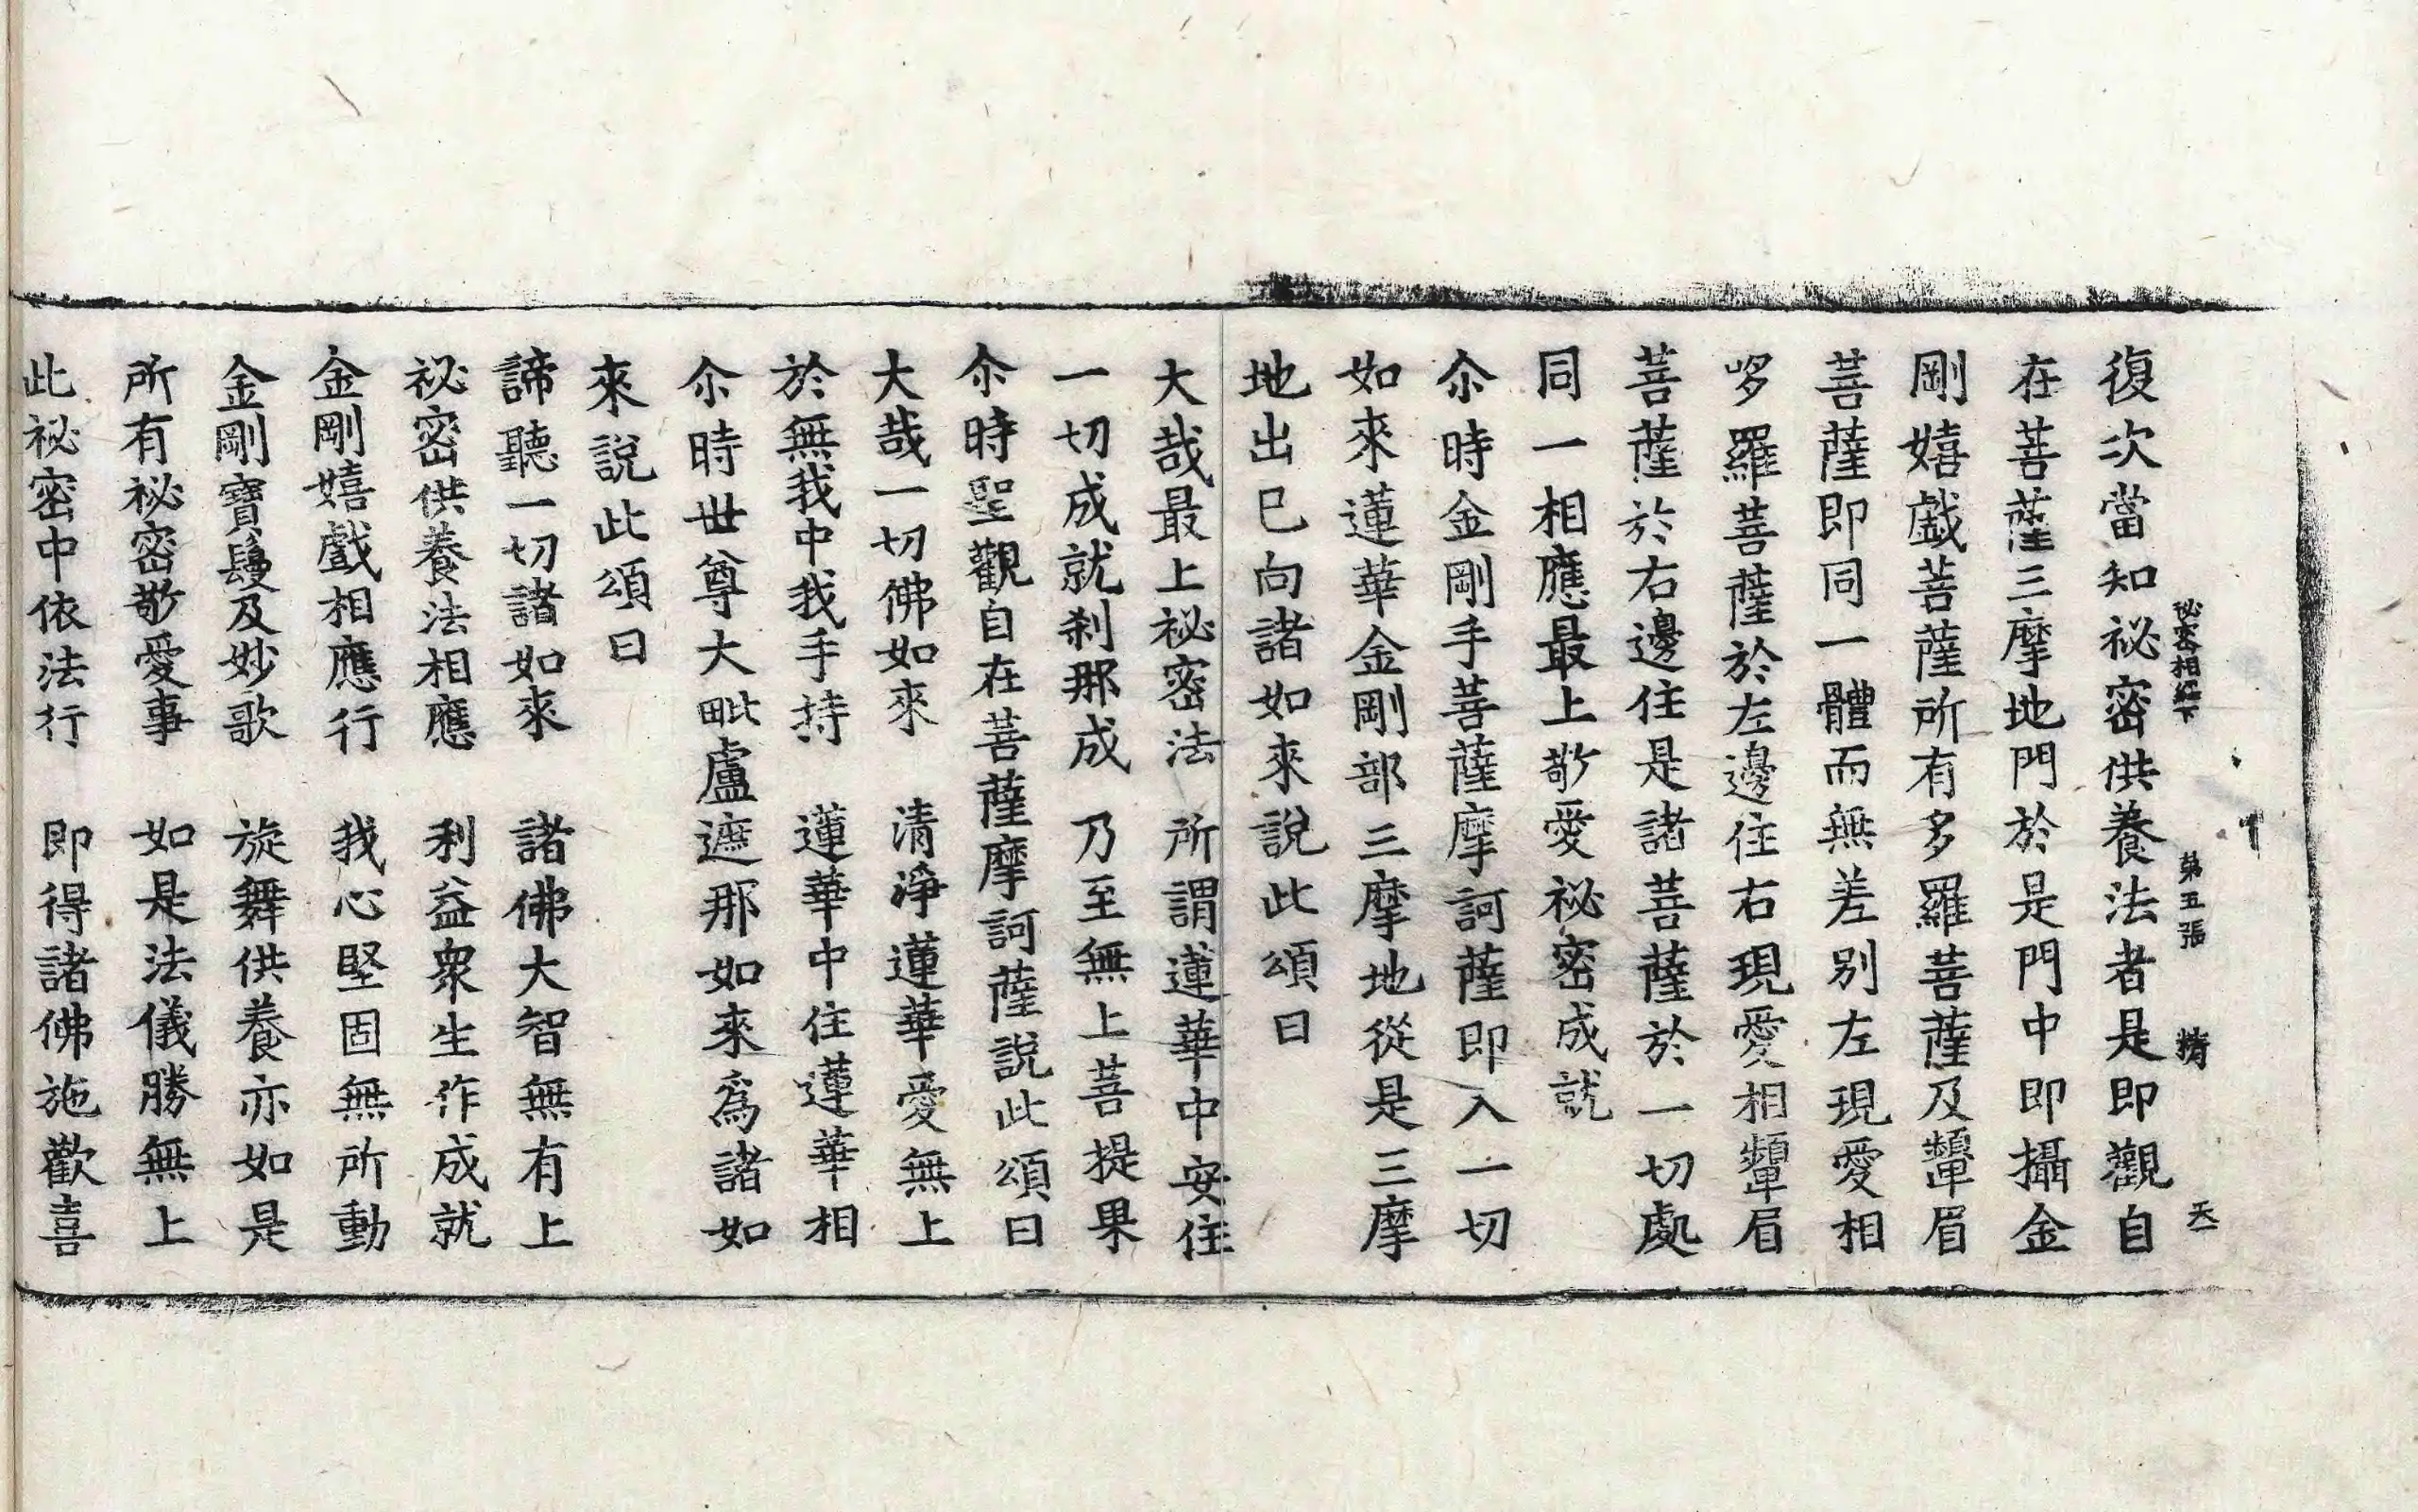 秘密相經下 第五張 精 天
復次當知祕密供養法者是即觀自
在菩薩三摩地門於是門中即攝金
剛嬉戲菩薩所有多羅菩薩及顰眉
菩薩即同一體而無差别左現愛相
哆羅菩薩於左邊住右現愛相顰眉
菩薩於右邊住是諸菩薩於一切處
同一相應最上敬愛祕密成就
尒時金剛手菩薩摩訶薩即入一切
如來蓮華金剛部三摩地從是三摩
地出巳向諸如來說此頌曰
大哉最上祕密法 所謂蓮華中安住
一切成就刹那成 乃至無上菩提果
尒時聖觀自在菩薩摩訶薩說此頌曰
大哉一切佛如來 清淨蓮華愛無上
於無我中我手持 蓮華中住蓮華相
尒時世尊大毗盧遮那如來爲諸如
來說此頌曰
諦聽一切諸如來 諸佛大智無有上
祕密供養法相應 利益衆生作成就
金剛嬉戲相應行 我心堅固無所動
金剛寶鬘及妙歌 旋舞供養亦如是
所有祕密敬愛事 如是法儀勝無上
此祕密中依法行 即得諸佛施歡喜